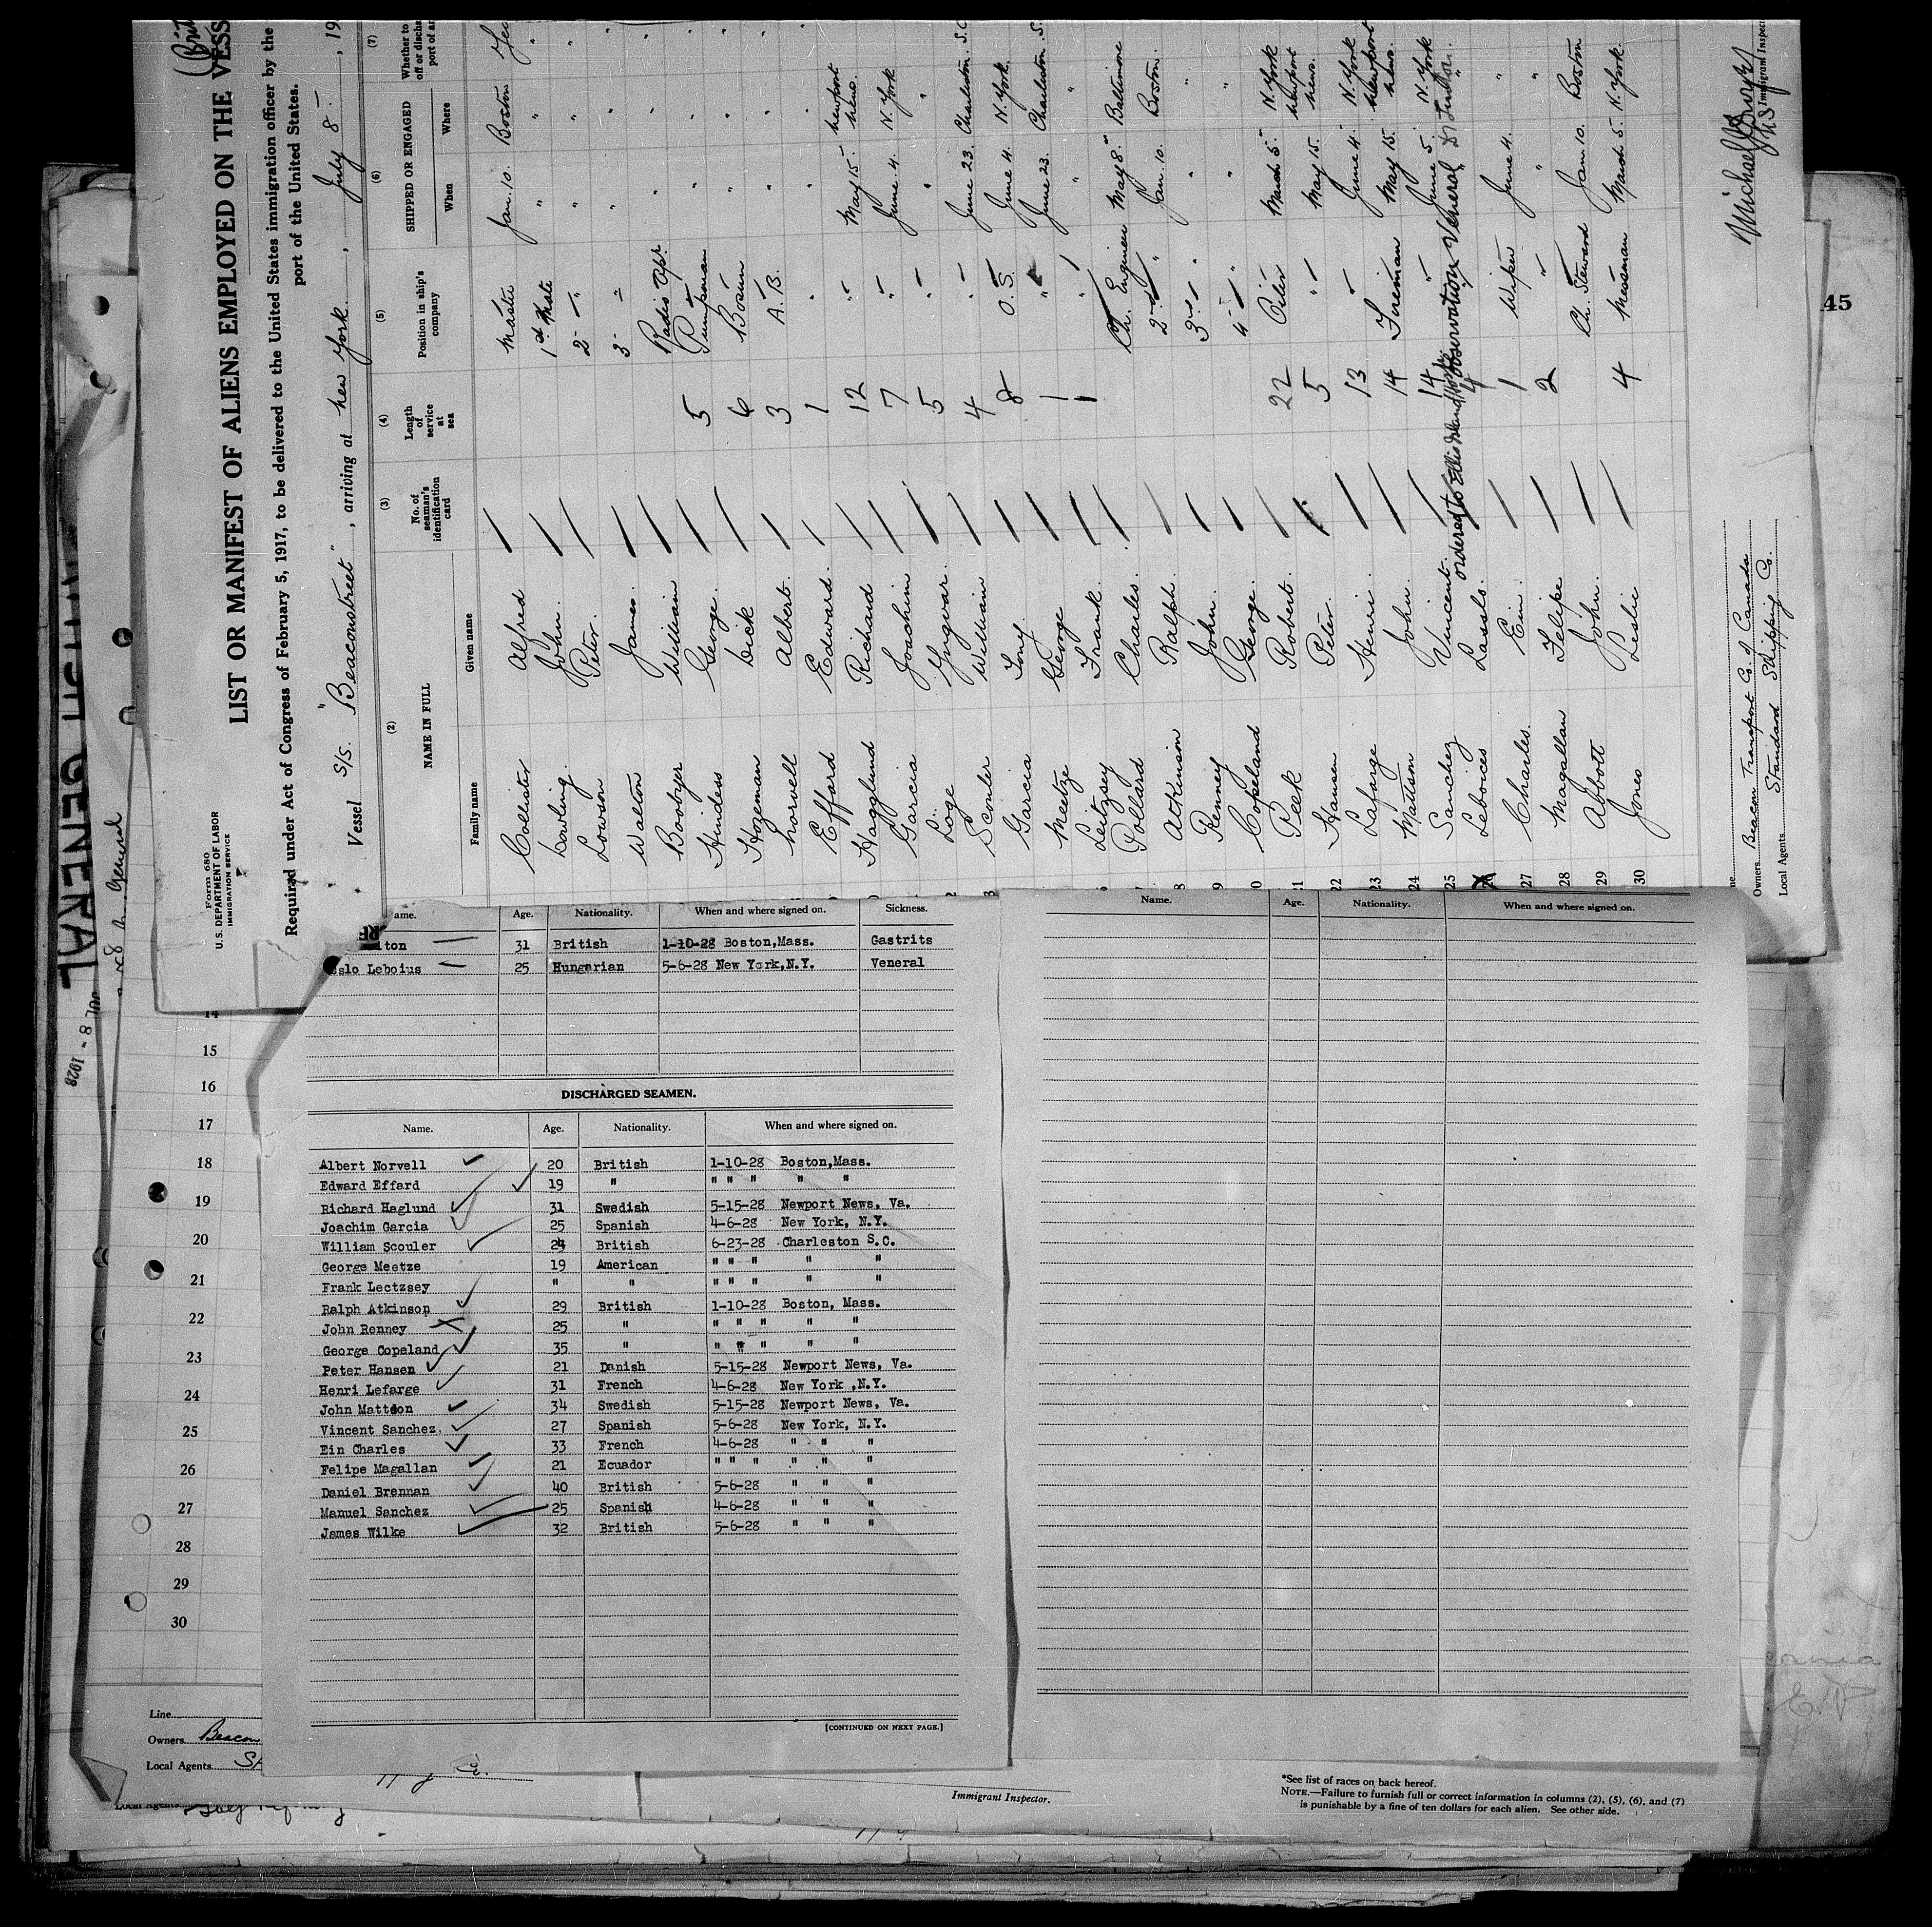 Form 680
U. S. DEPARTMENT OF LABOR
IMMIGRATION SERVICE
LIST OR MANIFEST OF ALIENS EMPLOYED ON THE VESS
Required under Act of Congress of February 5, 1917, to be delivered to the United States immigration officer by the
port of the United States.
Vessel S/S. "Beaconstreet", arriving at New York, July 8-, 19
(2) (3) (4) (5) (6) (7)
NAME IN FULL No. of seaman's identification card Length of service at sea Position in ship's company SHIPPED OR ENGAGED
Family name Given name When Where
Collister Alfred Master Jan. 10. Boston
Dowling John. 1st Mate " "
Lowson Peter. 2- " "
Walton James. 3- " "
Boobyer William Radio Opr.
Hindess George. 5 Pumpman
Hozeman Dick 6 Bosun
Norvell Albert. 3 A.B.
Effard Edward. 1 "
Hagglund Richard 12 " May 15- Newport News.
Garcia Joachim 7 " June 4. N. York
Loge Yngvar. 5 " " "
Scouler William 4 " June 23. Charleston. S.C
Garcia Tony. 8 O.S. June 4. N. York.
Meetze George 1 " June 23. Charleston S.
Leitzsey Frank. 1 " " "
Pollard Charles. Ch. Engineer May 8- Baltimore
Atkinson Ralph. 2- " Jan. 10. Boston.
Renney John. 3- " " "
Copeland George. 4- " " "
Peek Robert. 22 Oiler March 5- N. York
Hansen Peter. 5 " May 15. Newport News.
Lafarge Henri. 13 " June 4- N. York
Mattson John. 14 Fireman May 15. Newport News.
25 Sanchez Vincent. 14 " June 5. N. York
Leboices Lassls. 4 ordered to Ellis Island Hosp. for observation Veneral
27 Charles. Ein. 1 Wiper June 4. "
28 Magallan Felipe 2 " " "
29 Abbott John. Ch. Steward Jan. 10. Boston
30 Jones Leslie 4 Messman March 5. N. York.
Owners Beacon Transport Co. of Canada
Local Agents Standard Shipping Co.
Immigrant Inspec
45
GENERAL
JUL 8 - 1928
ame. Age. Nationality. When and where signed on. Sickness.
lton 31 British 1-10-28 Boston,Mass. Gastrits
slo Leboius 25 Hungarian 5-6-28 New York,N.Y. Veneral
DISCHARGED SEAMEN.
Name. Age. Nationality. When and where signed on.
Albert Norvell 20 British 1-10-28 Boston,Mass.
Edward Effard 19 " " " " " "
Richard Haglund 31 Swedish 5-15-28 Newport News, Va.
Joachim Garcia 25 Spanish 4-6-28 New York, N.Y.
William Scouler 24 British 6-23-28 Charleston S.C.
George Meetze 19 American " " " " "
Frank Lectzsey " " " " " " "
Ralph Atkinson 29 British 1-10-28 Boston, Mass.
John Renney 25 " " " " " "
George Copeland 35 " " " " " "
Peter Hansen 21 Danish 5-15-28 Newport News, Va.
Henri Lefarge 31 French 4-6-28 New York ,N.Y.
John Mattson 34 Swedish 5-15-28 Newport News, Va.
Vincent Sanchez. 27 Spanish 5-6-28 New York, N.Y.
Ein Charles 33 French 4-6-28 " " "
Felipe Magallan 21 Ecuador " " " " " "
Daniel Brennan 40 British 5-6-28 " " "
Manuel Sanchez 25 Spanish 4-6-28 " " "
James Wilke 32 British 5-6-28 " " "
[CONTINUED ON NEXT PAGE.]
Name. Age. Nationality. When and where signed on.
14
15
16
17
18
19
20
21
22
23
24
25
26
27
28
29
30
Line
Owners Beacon
Local Agents
Immigrant Inspector.
*See list of races on back hereof.
NOTE.—Failure to furnish full or correct information in columns (2), (5), (6), and (7)
is punishable by a fine of ten dollars for each alien. See other side.